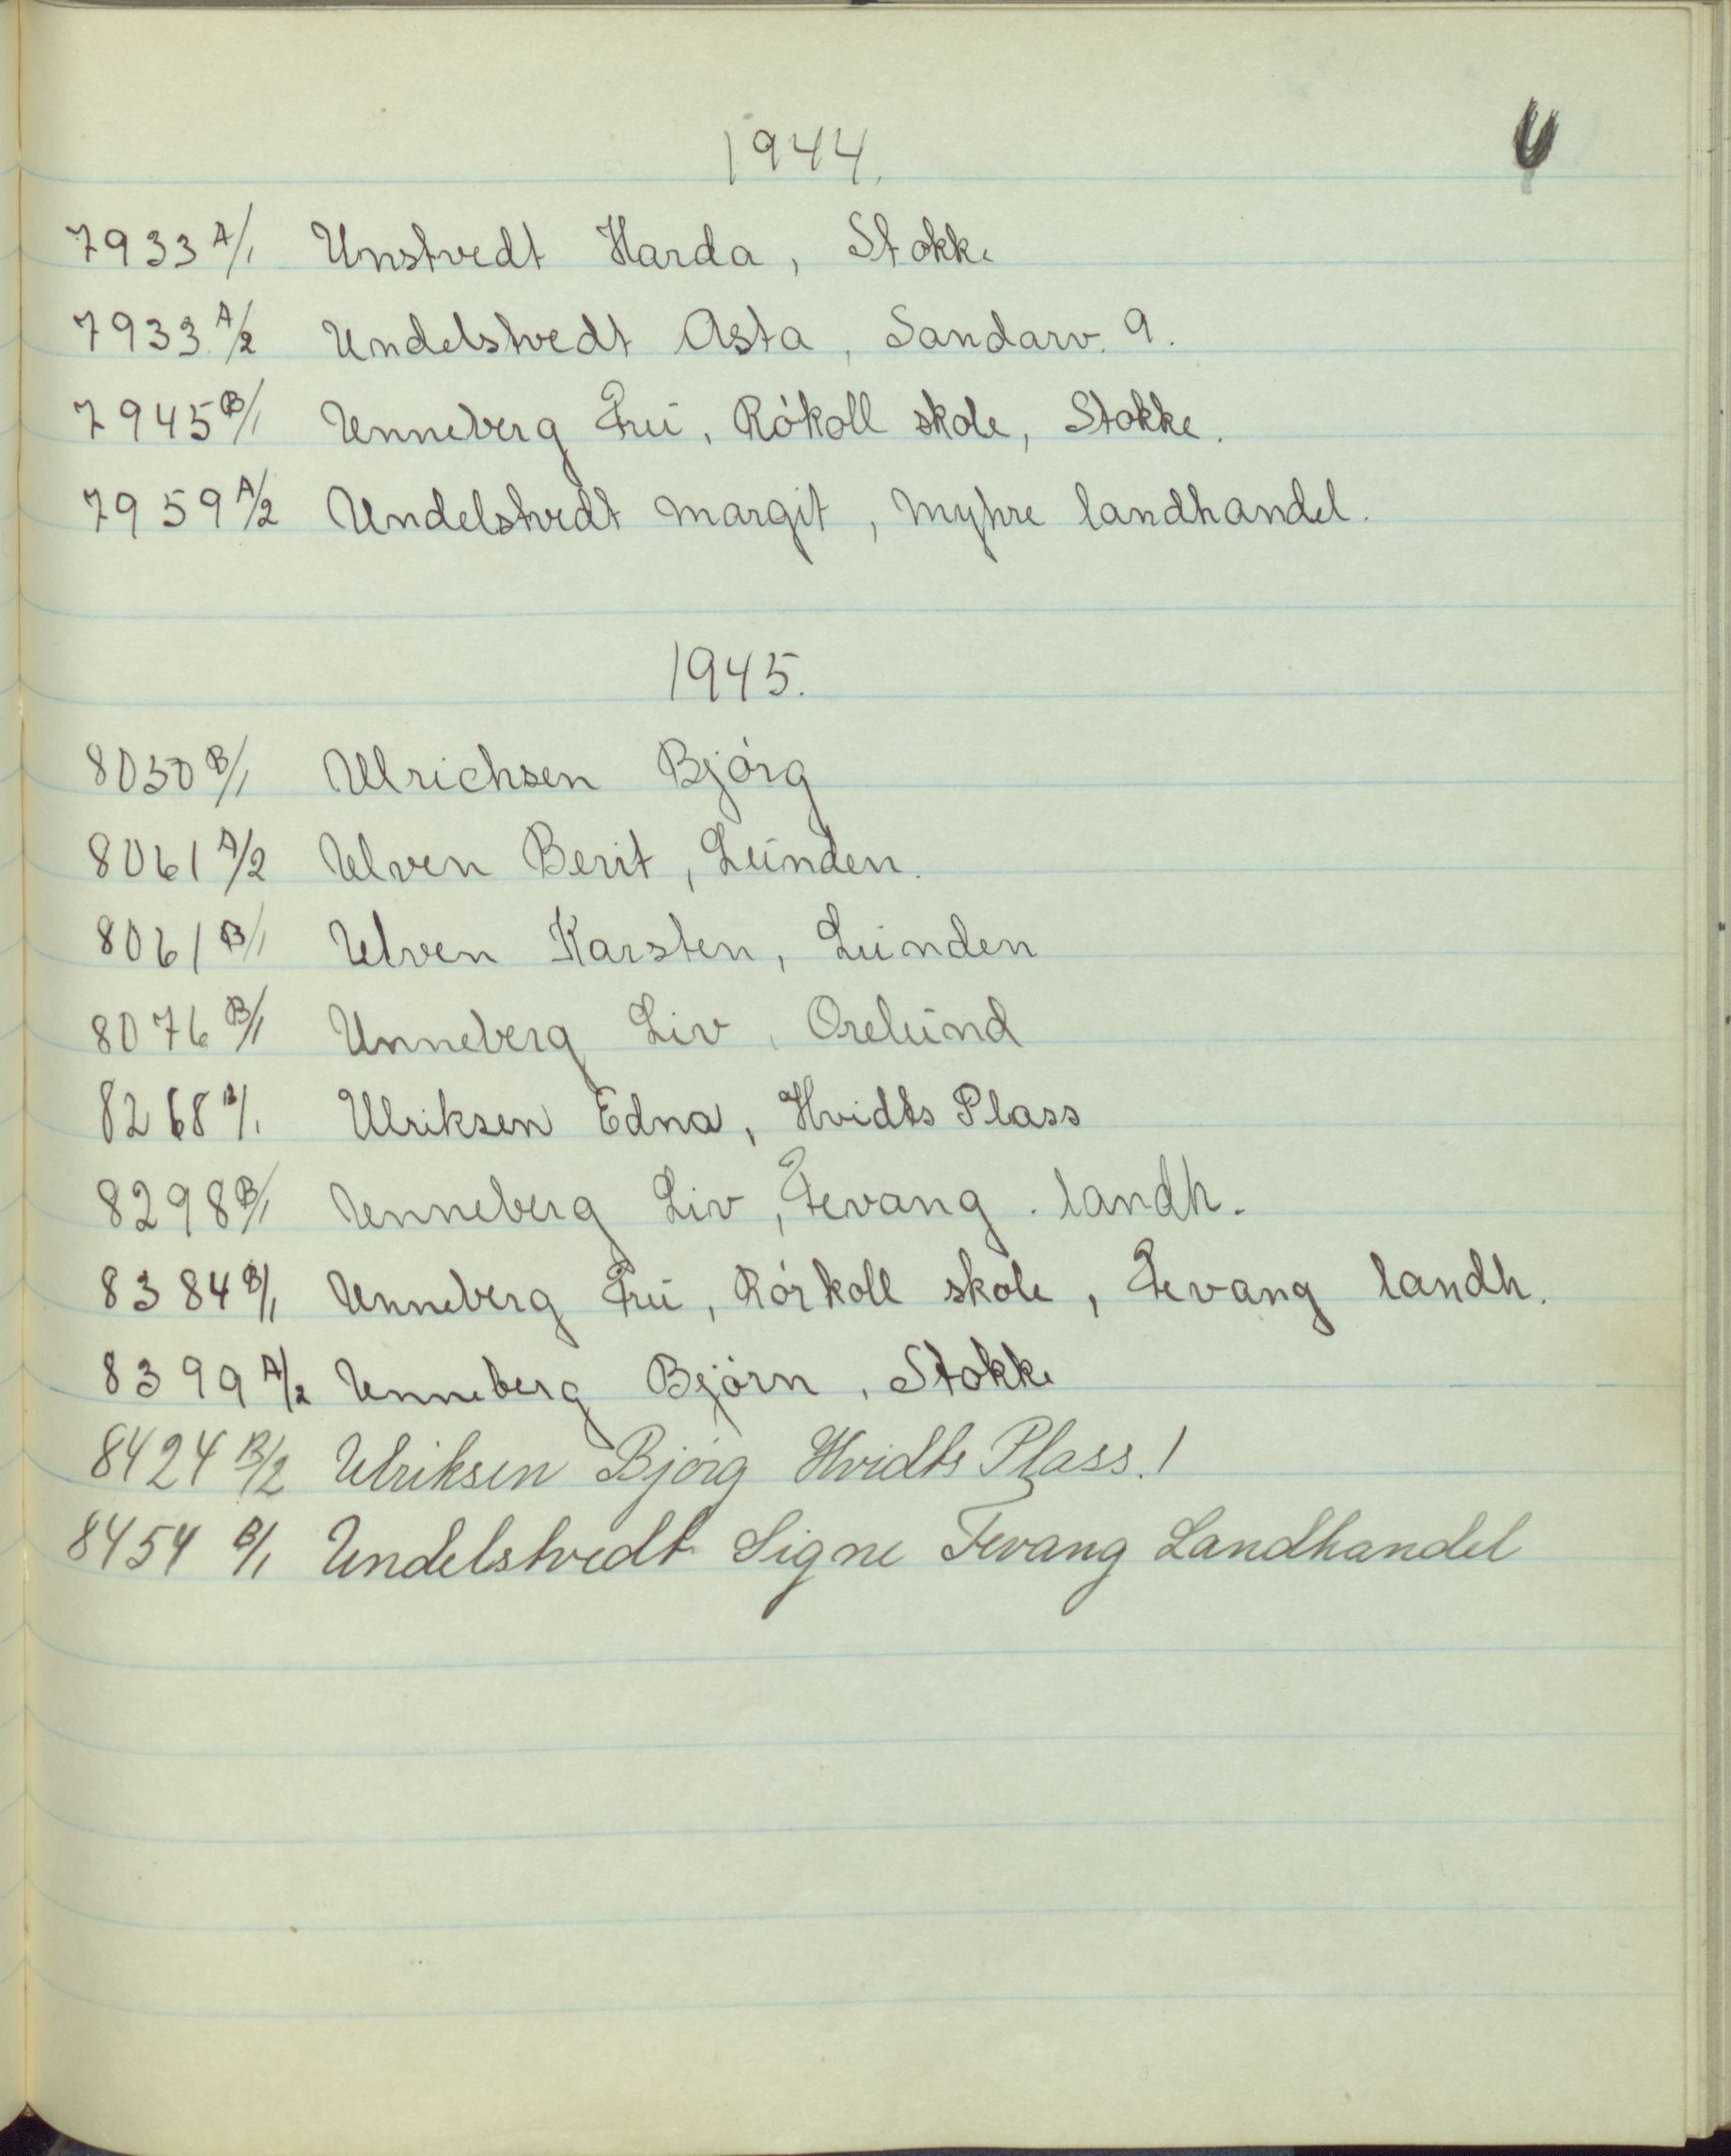 U
1944.
7933 A/1 Unstvedt Harda, Stokke
7933 A/2 Undelstvedt Asta, Sandarv. 9.
7945 B/1 Unneberg Fru, Rökoll skole, Stokke.
7959 A/2 Undelstvedt Margit, Myhre landhandel.
1945.
8030 B/1 Ulrichsen Bjórg
8061 A/2 Ulven Berit, Lunden.
8061 B/1 Ulven Karsten, Lunden
8076 B/1 Unneberg Liv, Orelund
8268 B/1. Ulriksen Edna, Hvidts Plass
8298 B/1 Unneberg Liv, Fevang. landh.
8384 B/1 Unneberg Fru, Rórkoll skole, Fevang landh.
8399 A/2 Unneberg Bjórn, Stokke
8424 B/2 Ulriksen Bjórg Hvidts Plass.!
8454 B/1 Undelstvedt Signe Fevang Landhandel